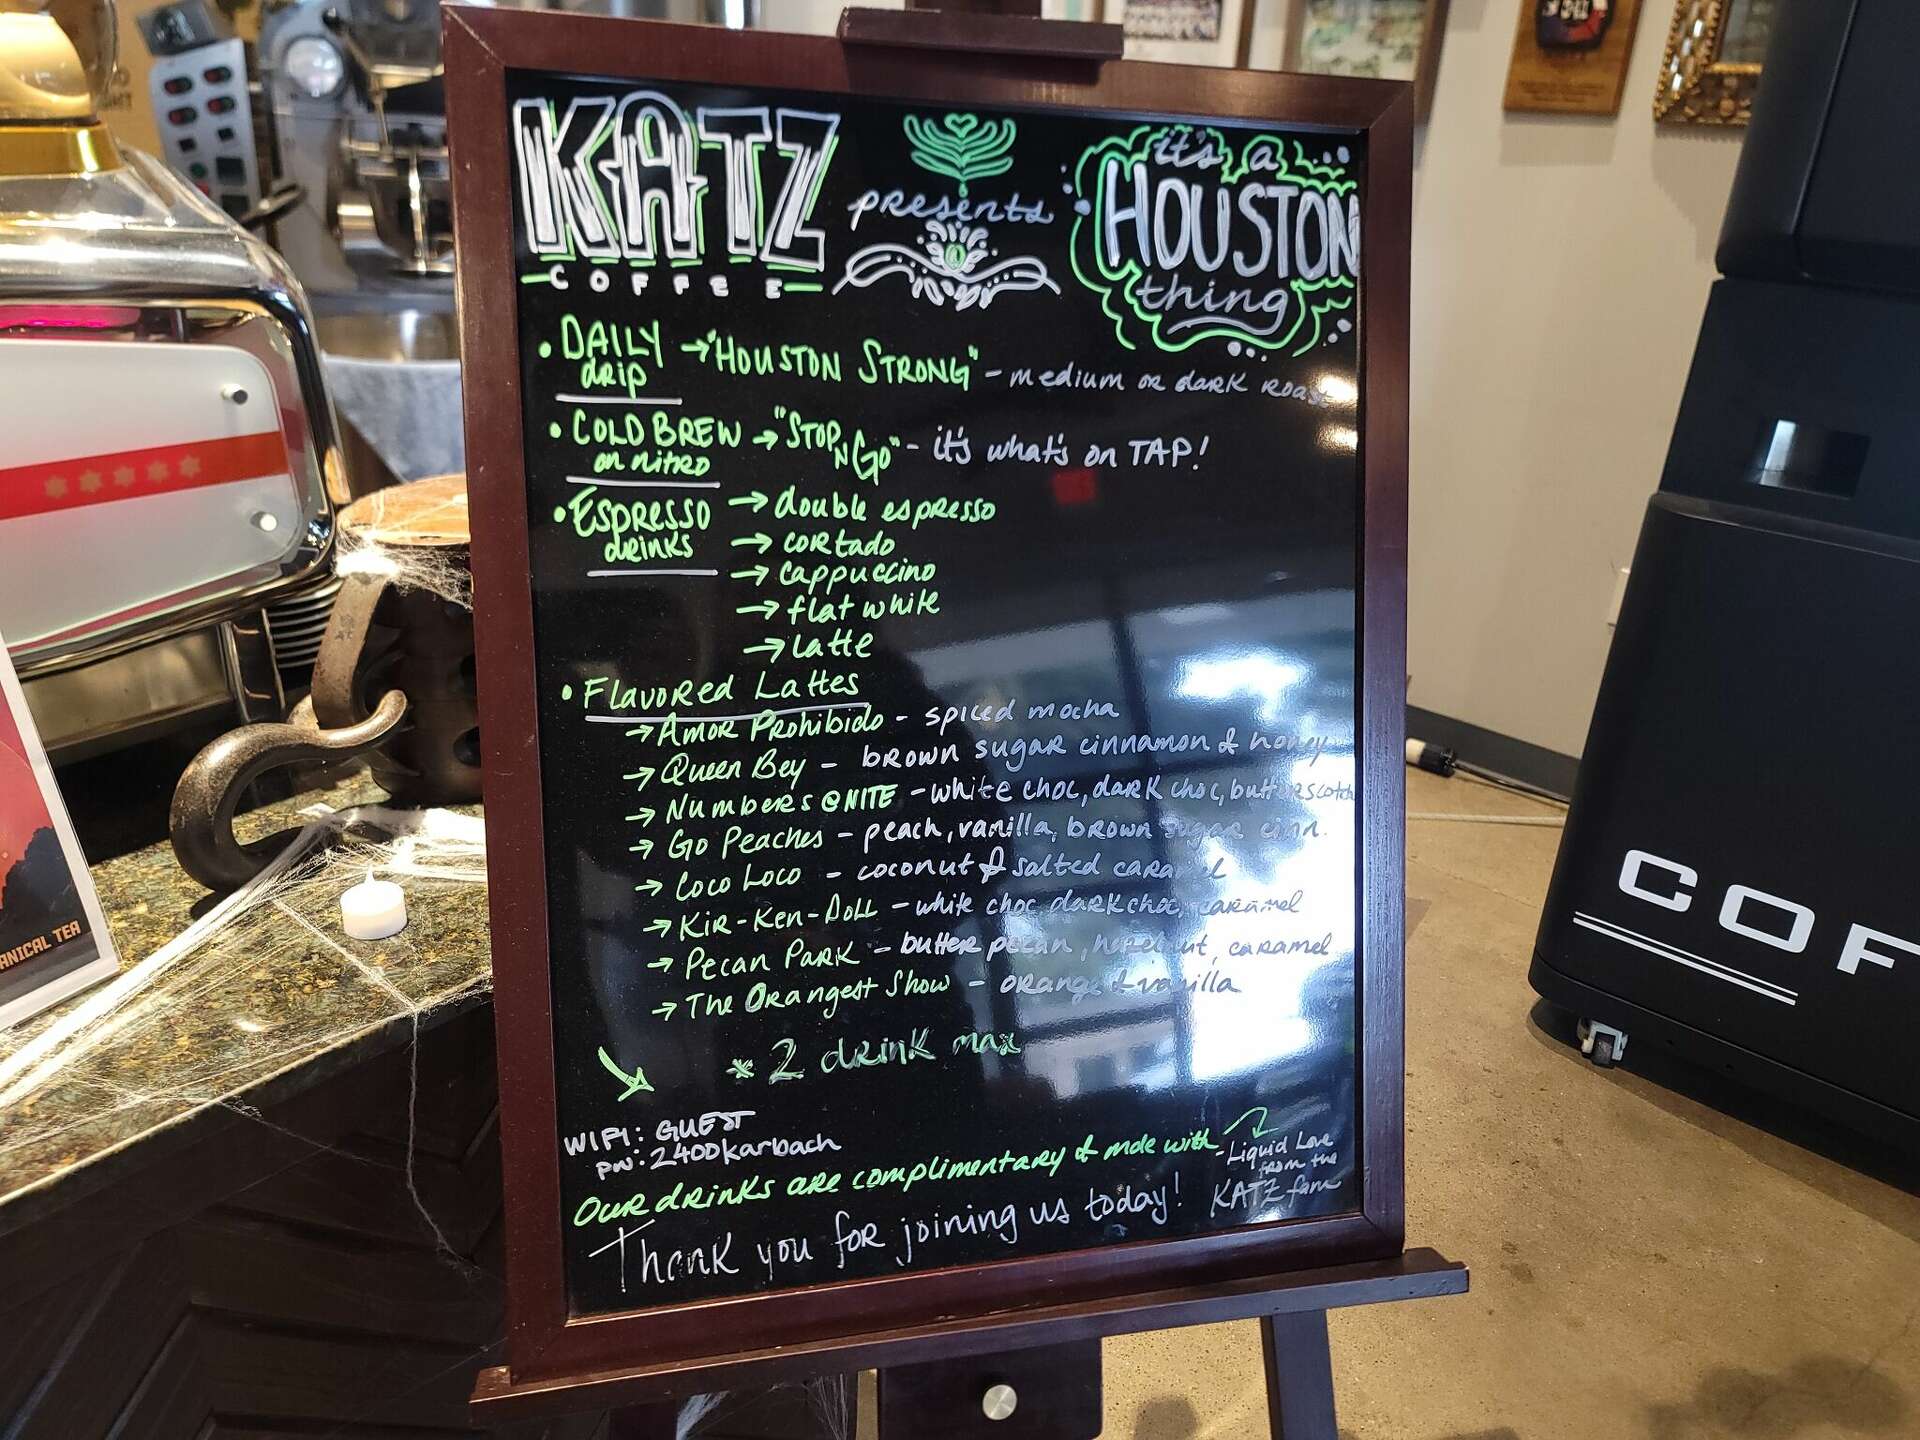 KATZ
COFFEE
presents
it's a
HOUSTON
thing
• DAILY drip → "HOUSTON STRONG" - medium or dark roast
• COLD BREW on nitro → "STOP N GO" - it's what's on TAP!
• ESPRESSO drinks → double espresso
→ cortado
→ cappuccino
→ flat white
→ latte
• Flavored Lattes
→ Amor Prohibido - spiced mocha
→ Queen Bey - brown sugar cinnamon & honey
→ Numbers @NITE - white choc, dark choc, butterscotch
→ Go Peaches - peach, vanilla, brown sugar cinn.
→ Coco Loco - coconut & salted caramel
→ Kir-Ken-Doll - white choc, dark choc, caramel
→ Pecan Park - butter pecan, hazelnut, caramel
→ The Orangest Show - orange & vanilla
* 2 drink max
WIFI: GUEST
pw: 2400karbach
Our drinks are complimentary & made with - Liquid Love
from the
KATZ fam
Thank you for joining us today!
ANICAL TEA
COF